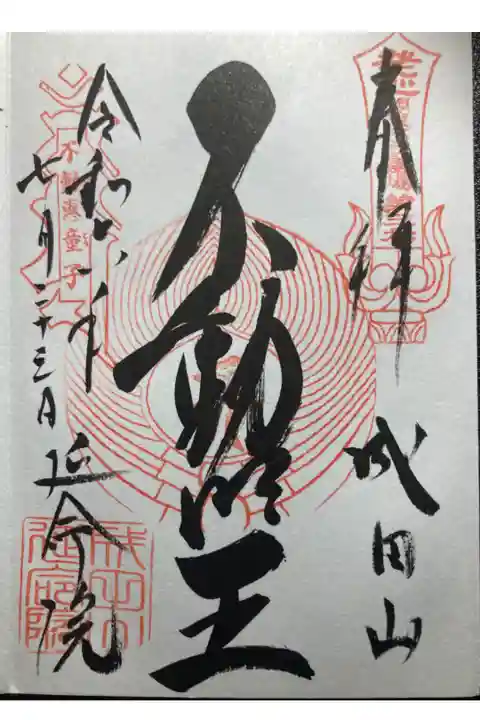 奉拝
成田山
不動明王
令和六年
七月二十三日
延命院
不動恵童子